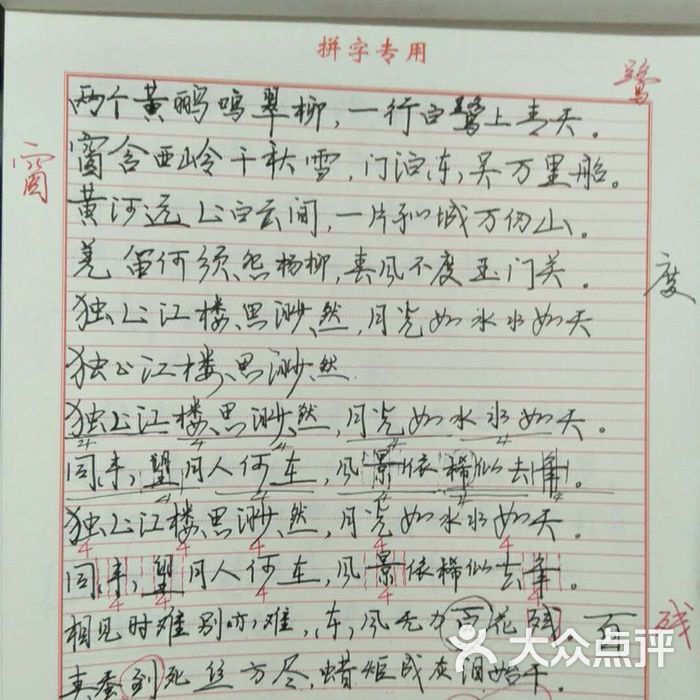 拼字专用
鹭
两个黄鹂鸣翠柳，一行白鹭上青天。
窗
窗含西岭千秋雪，门泊东吴万里船。
黄河远上白云间，一片孤城万仞山。
羌笛何须怨杨柳，春风不度玉门关。
度
独上江楼思渺然，月光如水水如天
独上江楼思渺然
独上江楼思渺然，月光如水水如天。
同来望月人何在，风景依稀似去年。
独上江楼思渺然，月光如水水如天。
同来望月人何在，风景依稀似去年。
相见时难别亦难，东风无力百花残。
百
残
春蚕到死丝方尽，蜡炬成灰泪始干。
大众点评